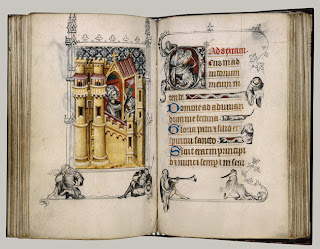 Ad sextam.
Deus in ad
iutorium
meum in
tende
Domine ad adiuuan
dum me festina
Gloria patri et filio et
spiritui sancto
Sicut erat in principi
o et nunc et semper et in secu